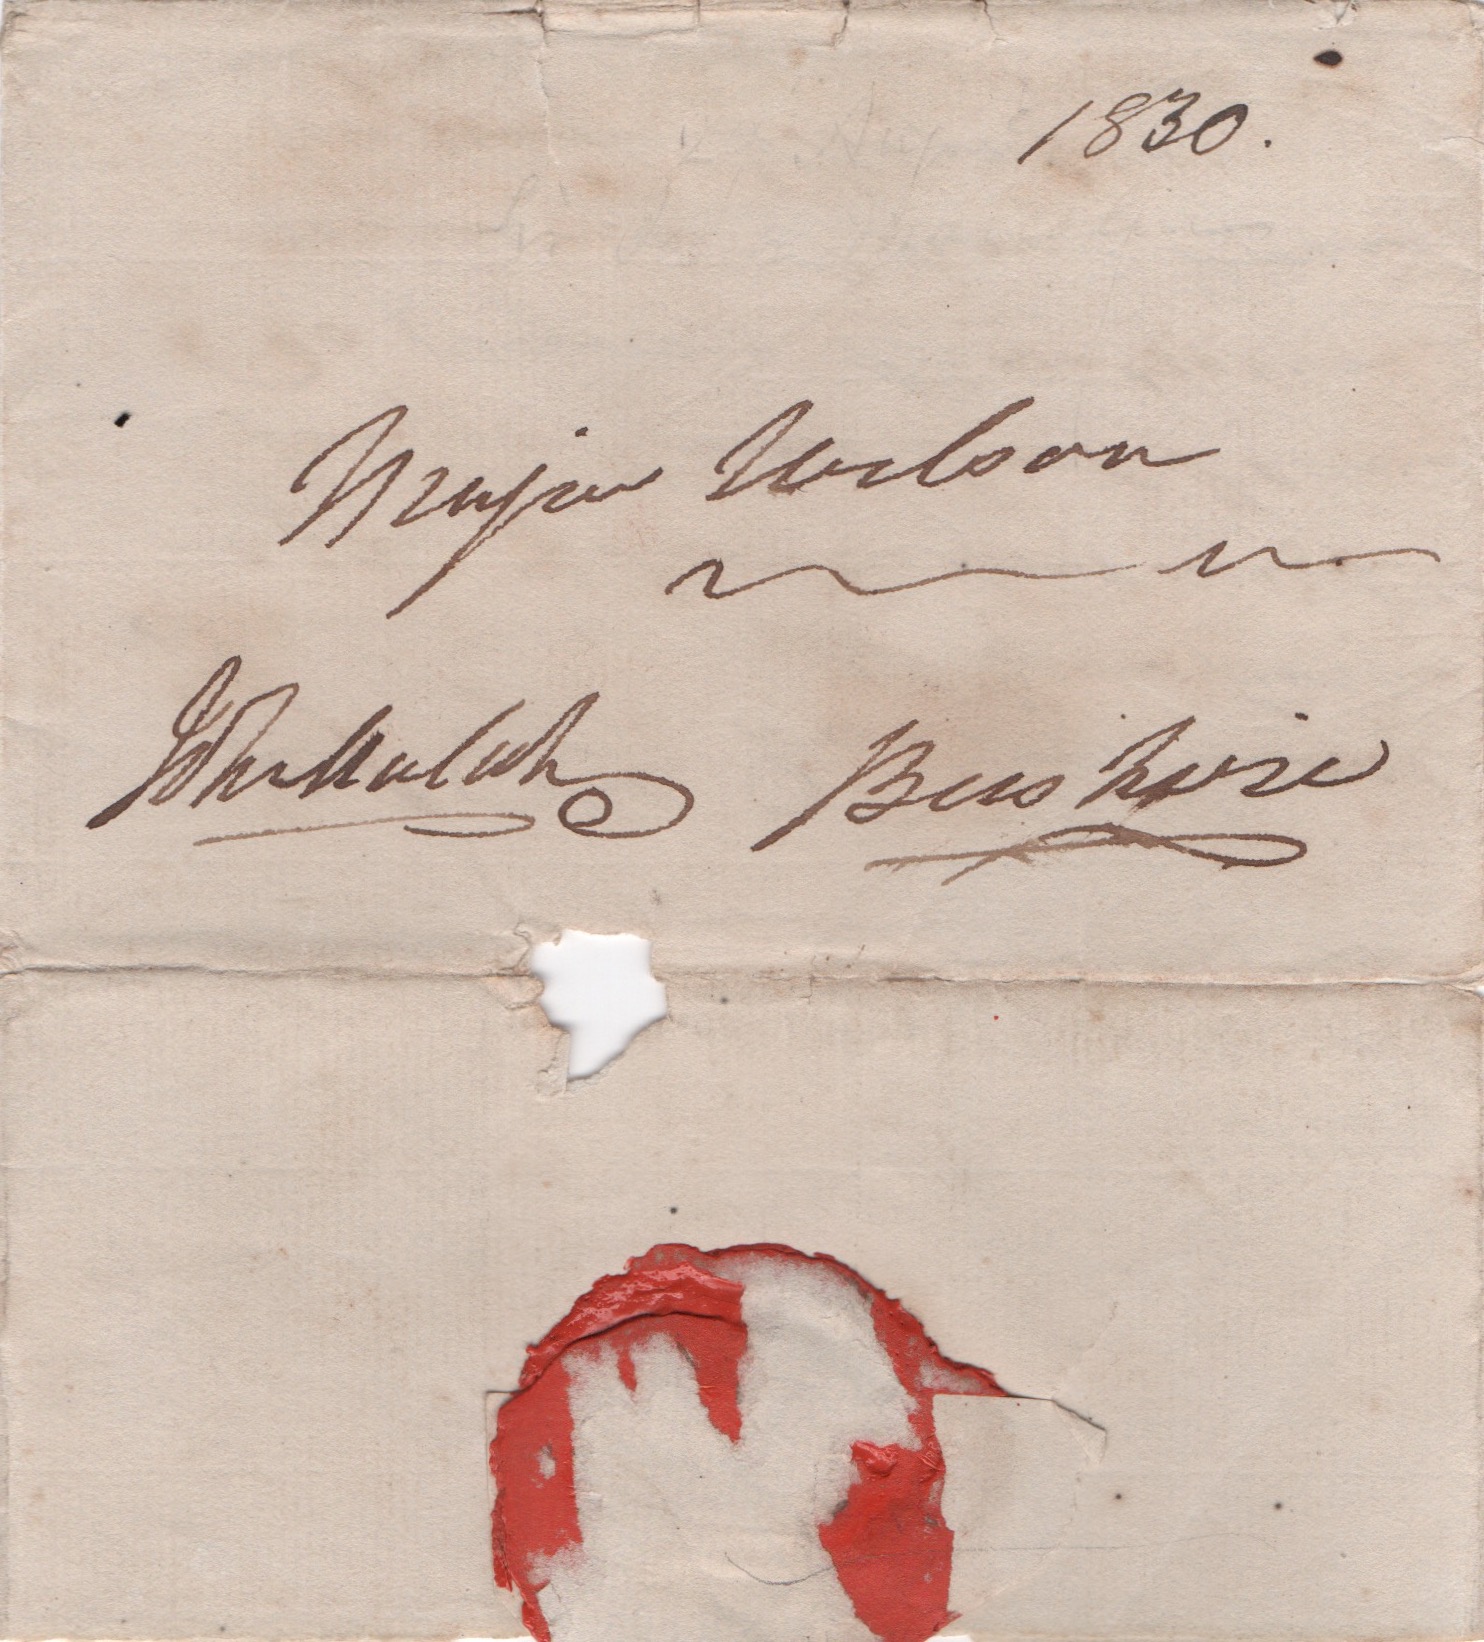 1830.
Major Wilson
John Malcolm Bushire